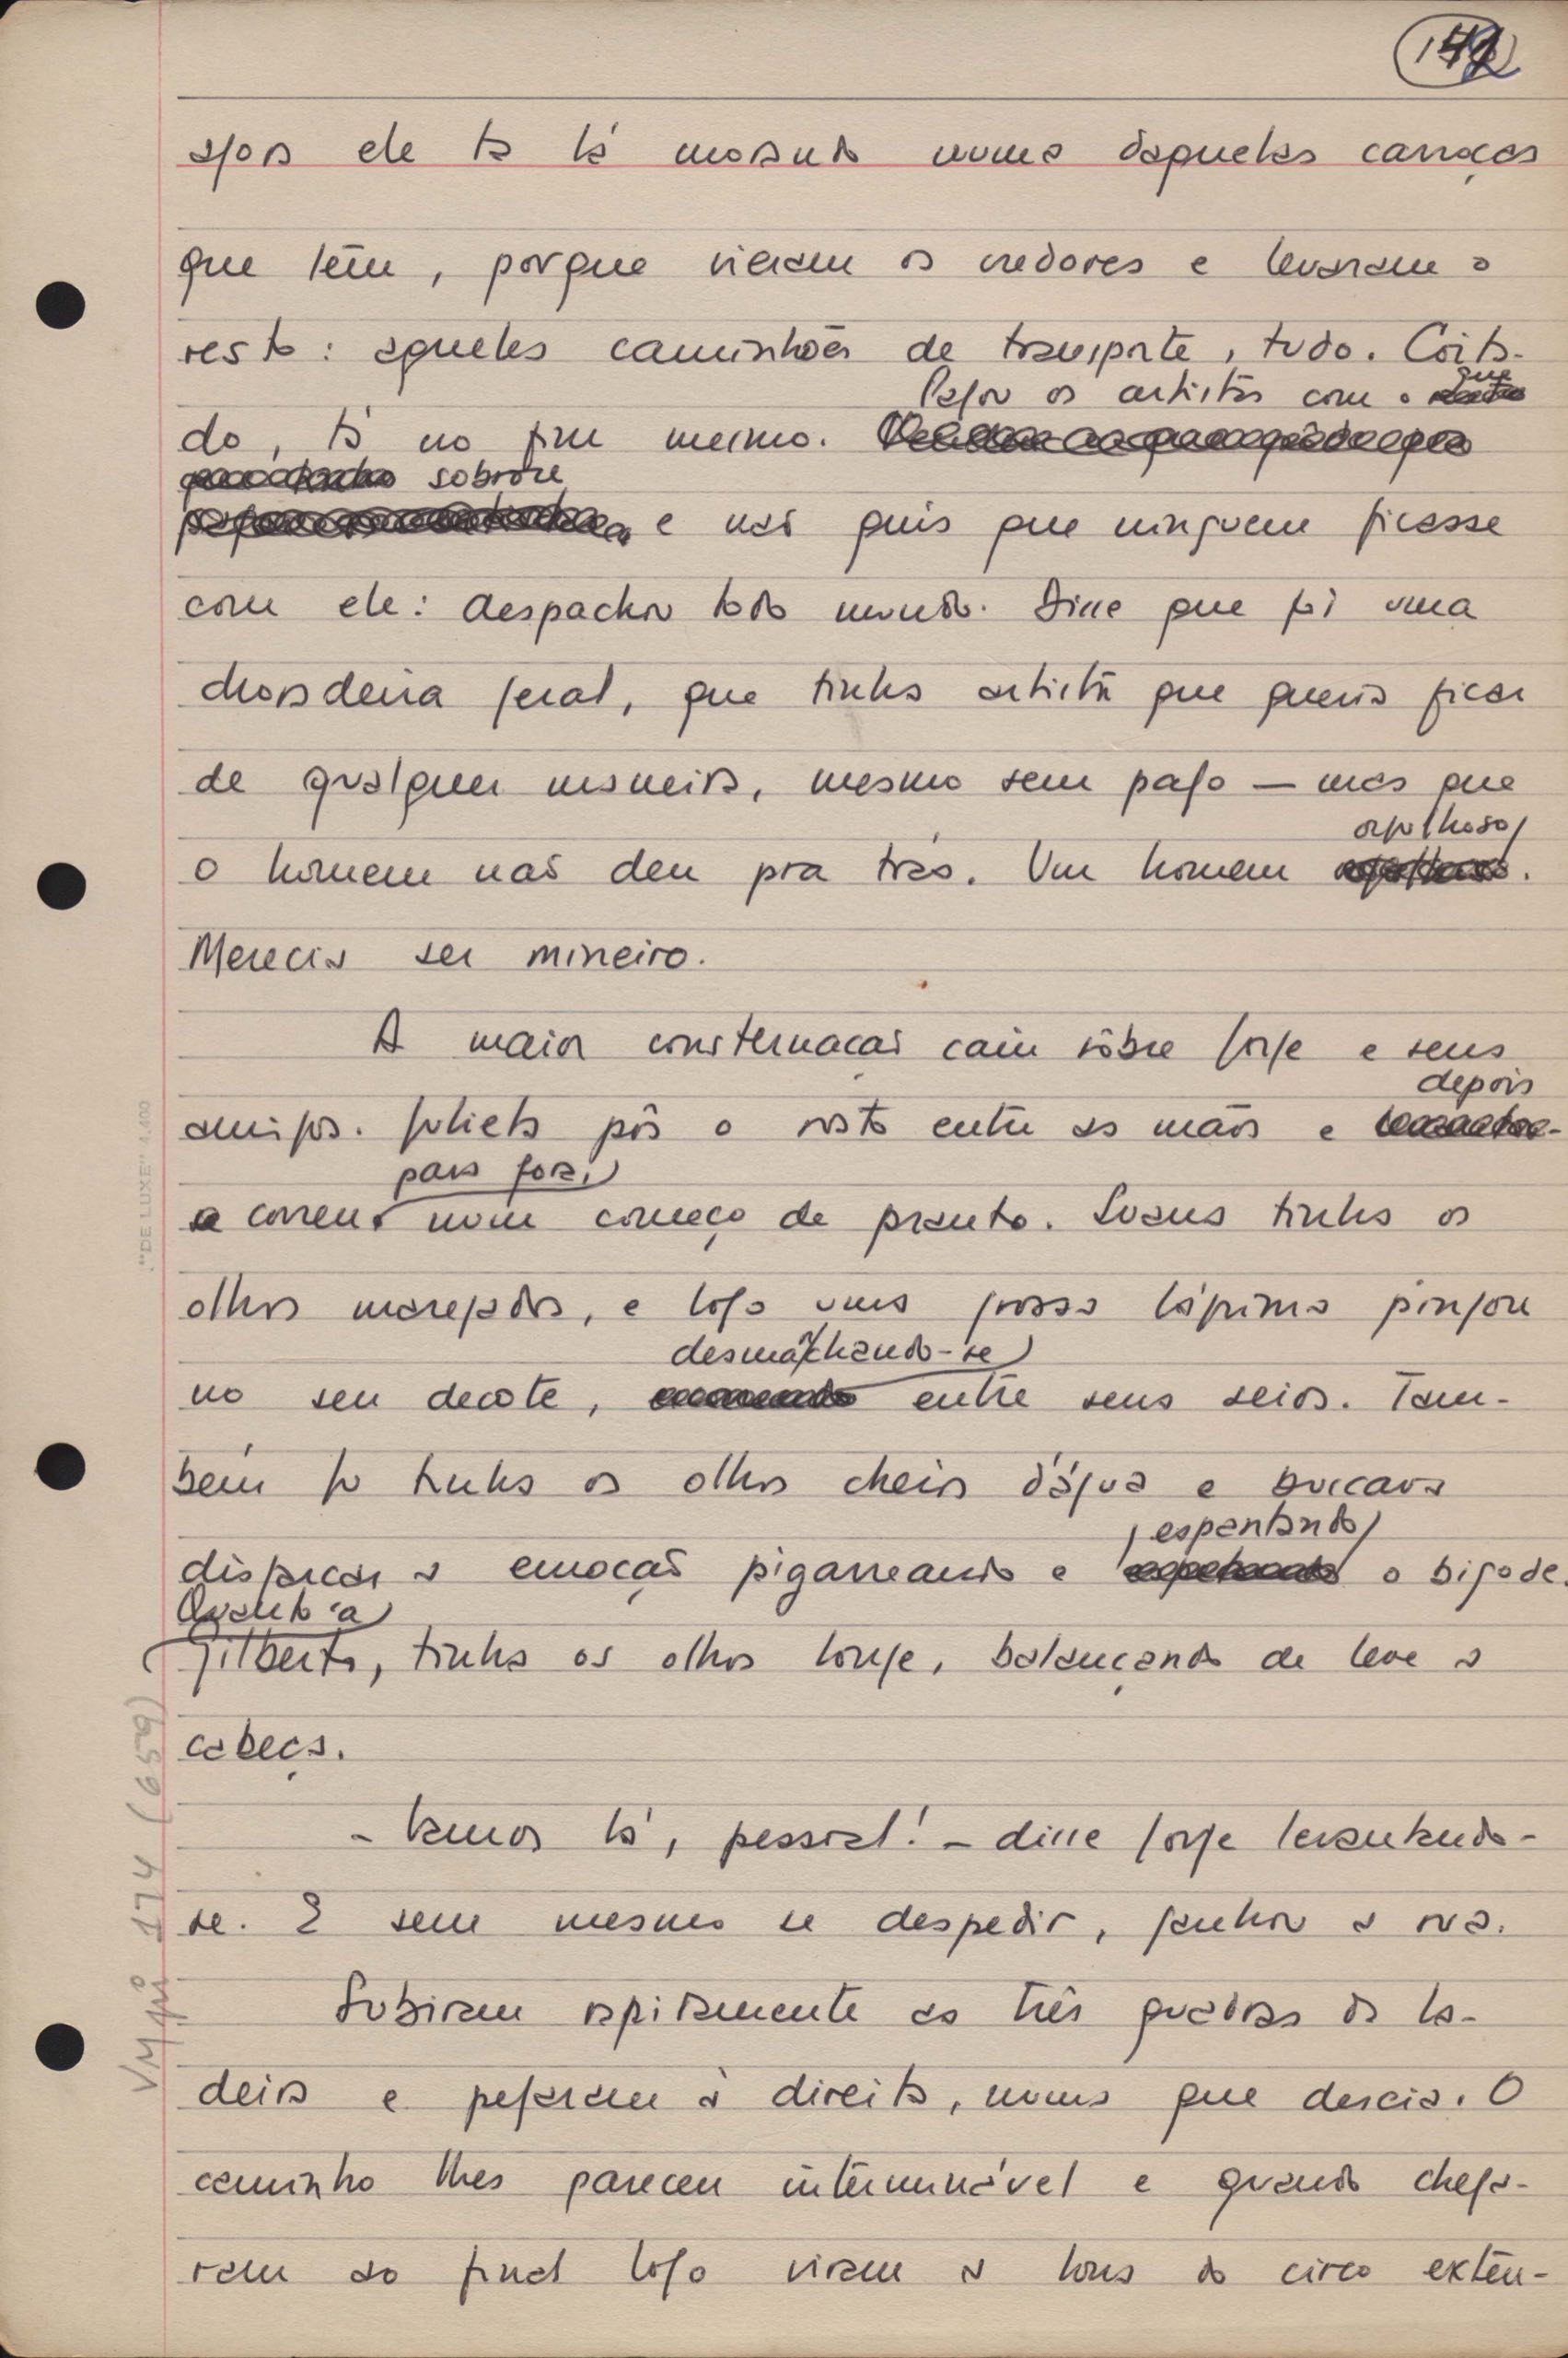 142
agora ele tá lá morando numa daquelas carroças
que têm, porque vieram os credores e levaram o
resto: aqueles caminhões de transporte, tudo. Coita-
Pagou os artistas com o que
do, tá no fim mesmo.
sobrou
e não quis que ninguem ficasse
com ele: despachou todo mundo. Disse que foi uma
choradeira geral, que tinha artista que queria ficar
de qualquer maneira, mesmo sem pago — mas que
orgulhoso
o homem não deu pra trás. Um homem .
Merecia ser mineiro.
A maior consternação caiu sôbre Jorge e seus
depois
amigos. Julieta pôs o rosto entre as mãos e
para fora,
correu num começo de pranto. Susana tinha os
olhos marejados, e logo uma grossa lágrima pingou
desmanchando-se
no seu decote, entre seus seios. Tam-
bém Jo tinha os olhos cheios d'água e buscava
espontando
disfarçar a emoção pigarreando e o bigode.
Quanto a
Gilberto, tinha os olhos longe, balançando de leve a
cabeça.
- Vamos lá, pessoal! - disse Jorge levantando-
se. E sem mesmo se despedir, ganhou a rua.
Subiram rapidamente as três quadras da la-
deira e pegaram à direita, numa que descia. O
caminho lhes pareceu interminável e quando chega-
ram ao final logo viram a lona do circo exten-
VM pi 174 (659)
"DE LUXE" 1.400